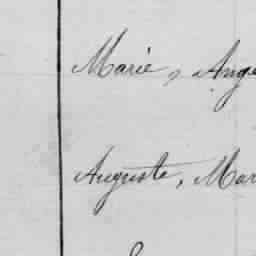 Marie, Ange
Auguste, Mar